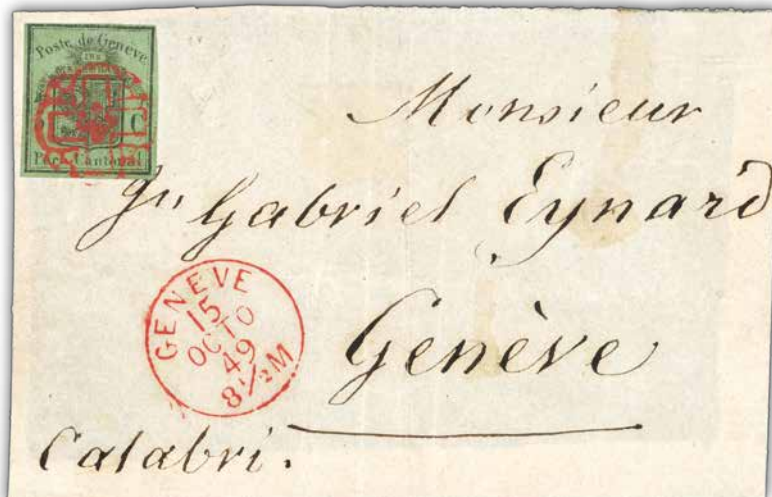 Poste de Genève
Port Cantonal
C
Monsieur
Jn Gabriel Eynard
GENEVE
15
OCTO
49
8½M
Genève
Calabri.